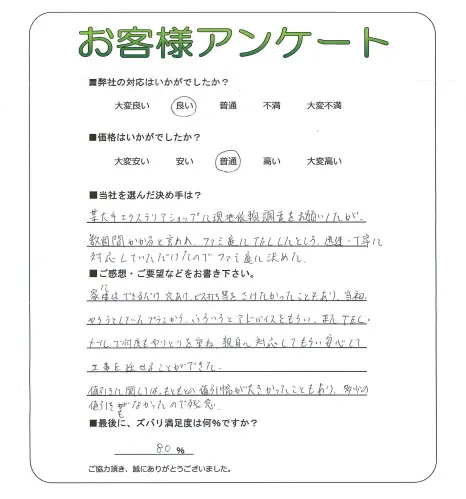 お客様アンケート
■弊社の対応はいかがでしたか？
大変良い 良い 普通 不満 大変不満
■価格はいかがでしたか？
大変安い 安い 普通 高い 大変高い
■当社を選んだ決め手は？
某大手エクステリアショップに現地依頼調査をお願いしたが、
数日間かかると言われ、ファミ庭にTELしたところ、迅速・丁寧に
対応していただけたのでファミ庭に決めた。
■ご感想・ご要望などをお書き下さい。
はできるだけ穴あけ、ビス打ち等をさけたかったこともあり、当初、
やろうとしていたプランから、いろいろとアドバイスをもらい、またTEL・
メールで何度もやりとりを重ね、親身に対応してもらい安心して
工事を任せることができた。
値引きに関しては、もともとの値引幅が大きかったこともあり、多少の
値引きもなかったので残念。
■最後に、ズバリ満足度は何%ですか？
80 %
ご協力頂き、誠にありがとうございました。